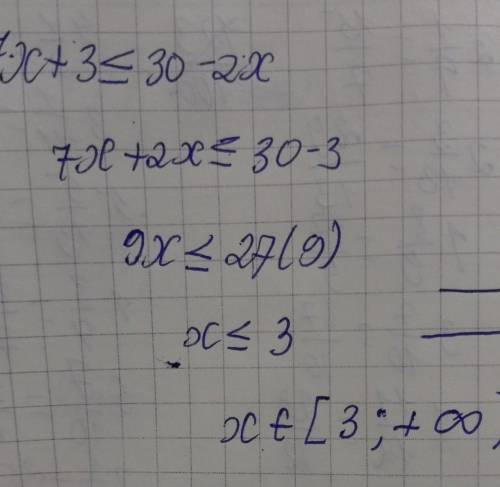 7x + 3 ≤ 30 - 2x
7x + 2x ≤ 30 - 3
9x ≤ 27 (9)
x ≤ 3
x ∈ [3; + ∞)